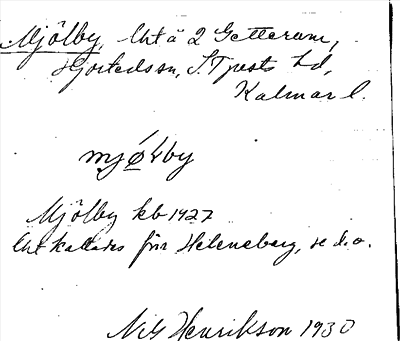 Mjölby, Uht å 2 Getterum,
Hjorteds sn, S. Tjusts hd,
Kalmar l.
mjö́lby
Mjölby kb 1927
Uht kallades förr Heleneberg, se d. o.
Nils Henrikson 1930